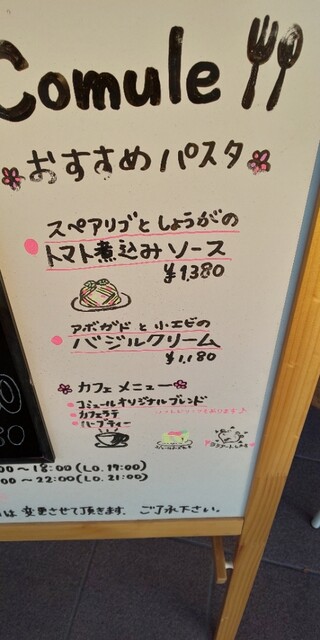 Comule
おすすめパスタ
スペアリブとしょうがの
トマト煮込みソース
¥1,380
アボガドと小エビの
バジルクリーム
¥1,180
カフェメニュー
コミュールオリジナルブレンド
カフェラテ
ハーブティー
00～18:00(L.O.17:00)
00～22:00(L.O.21:00)
は変更させて頂きます。ご了承下さい。